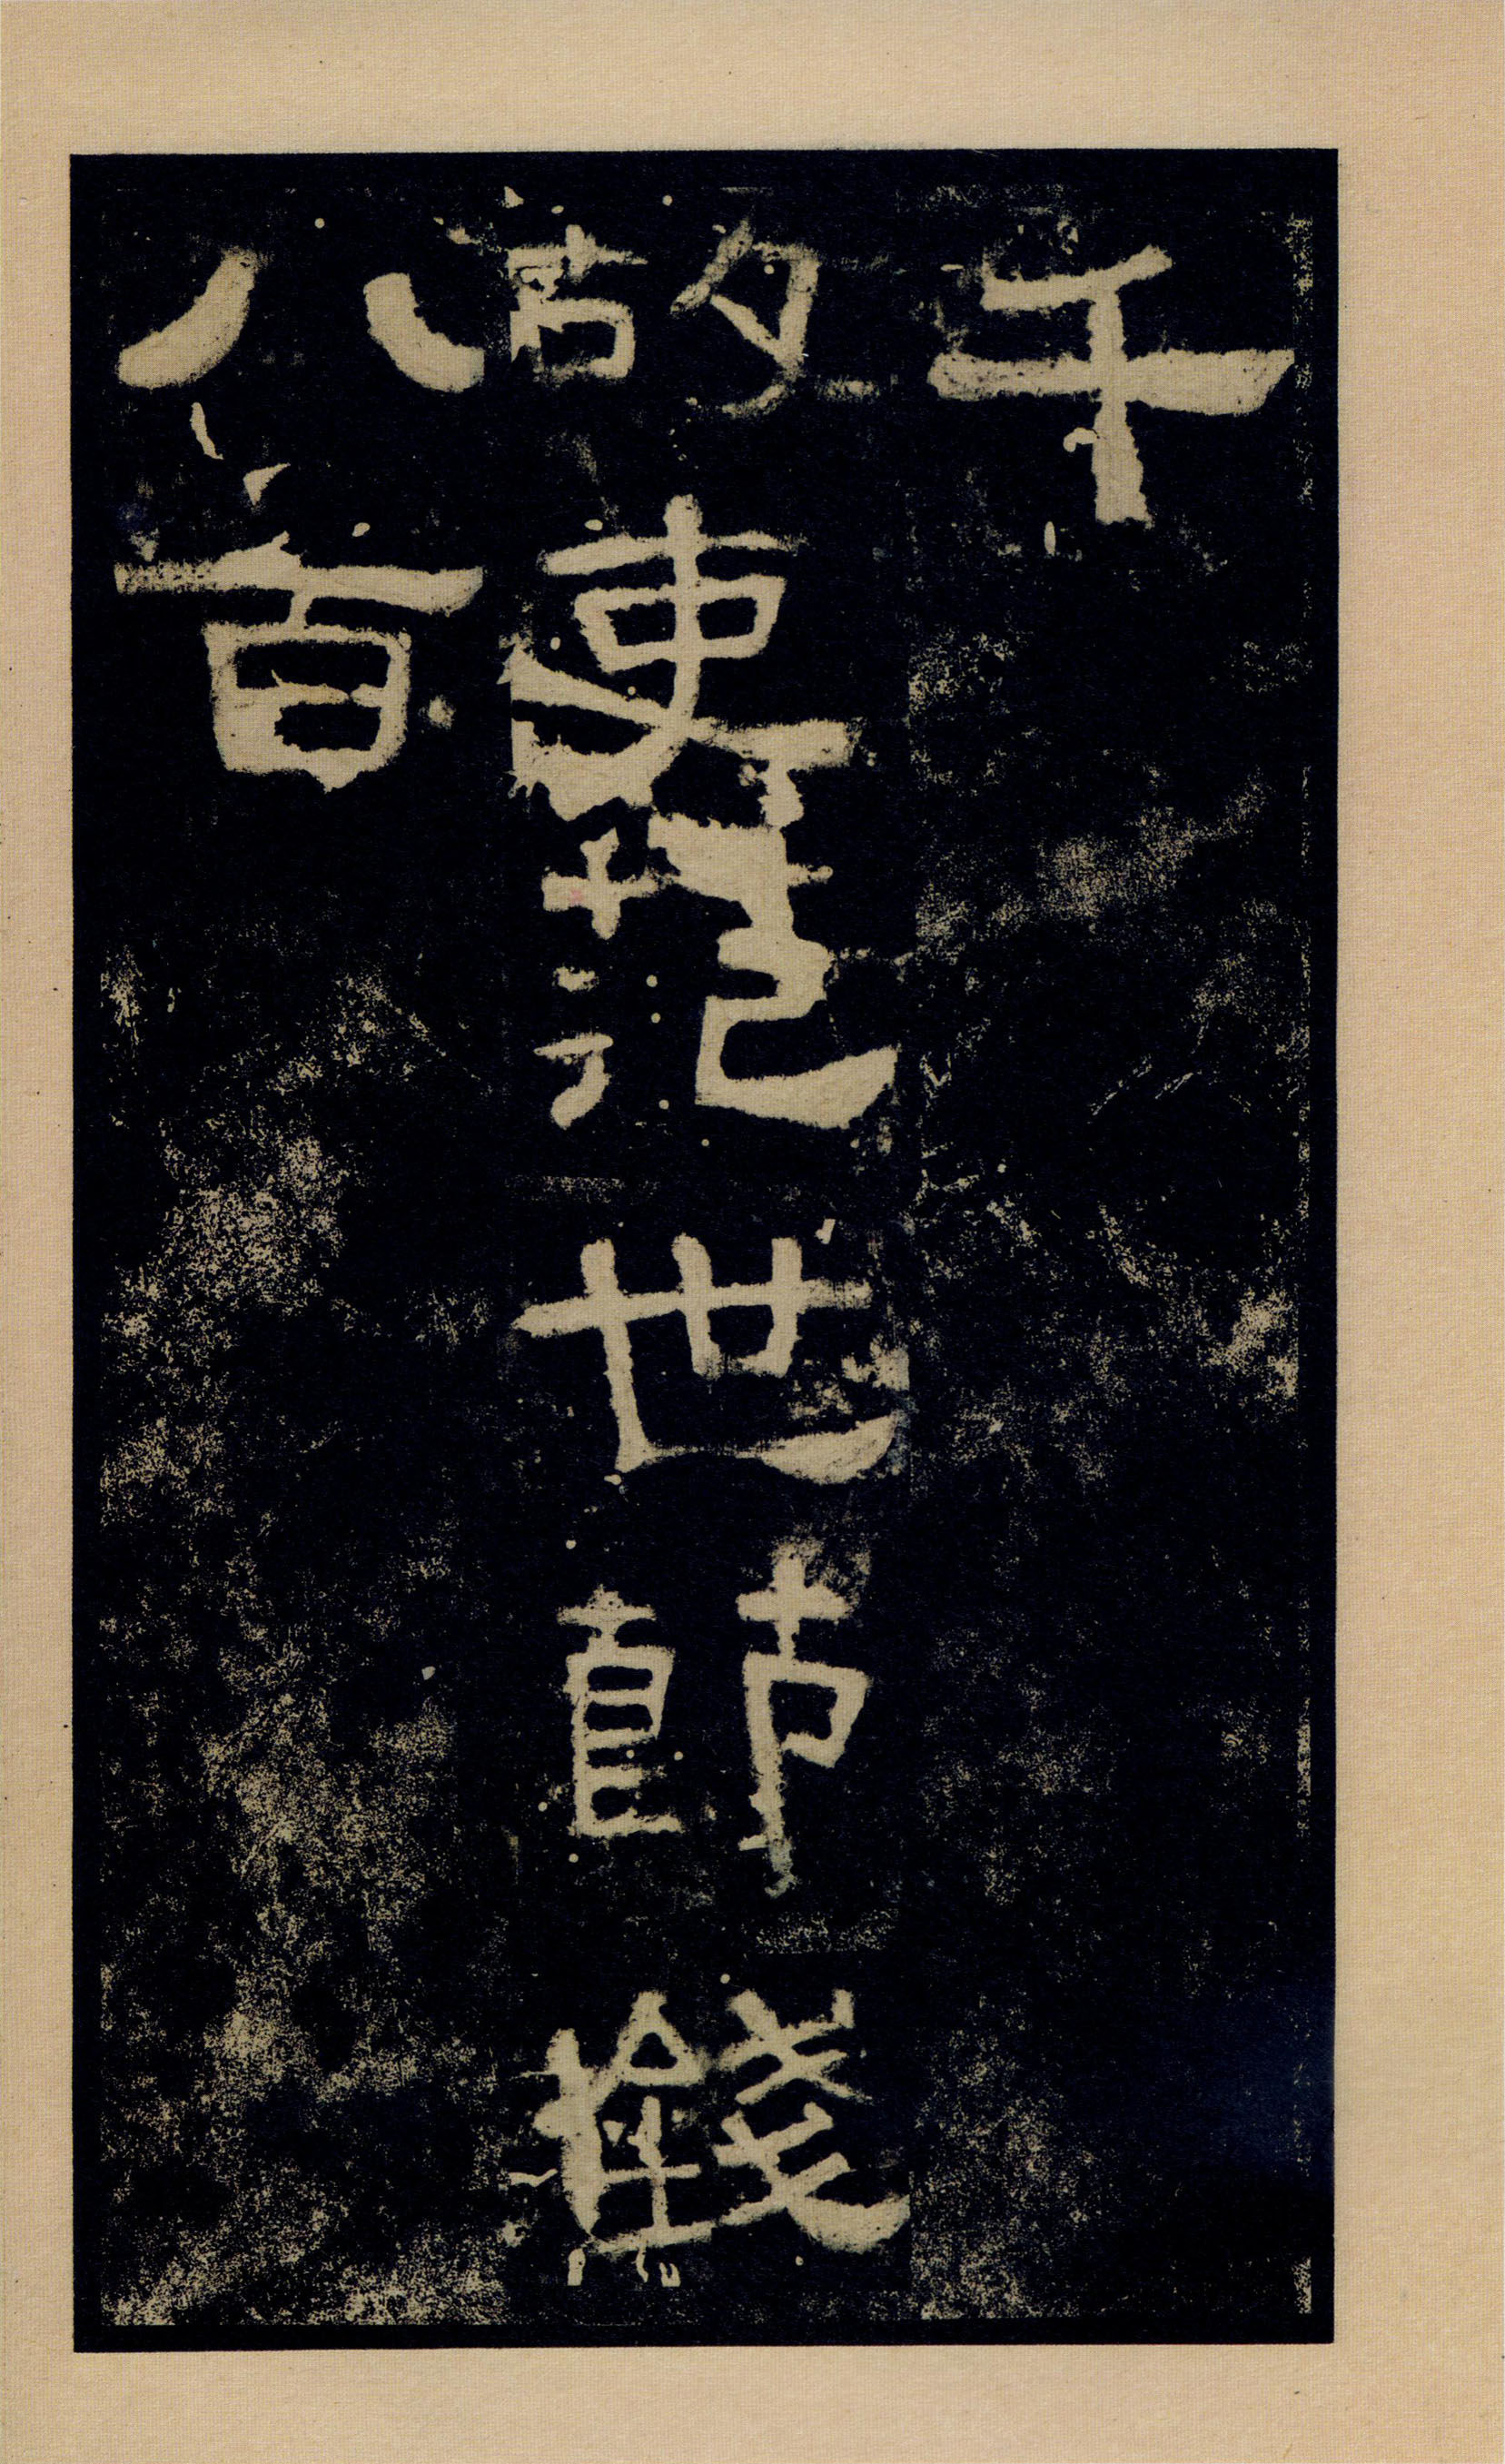 千
故吏范世節錢
八百